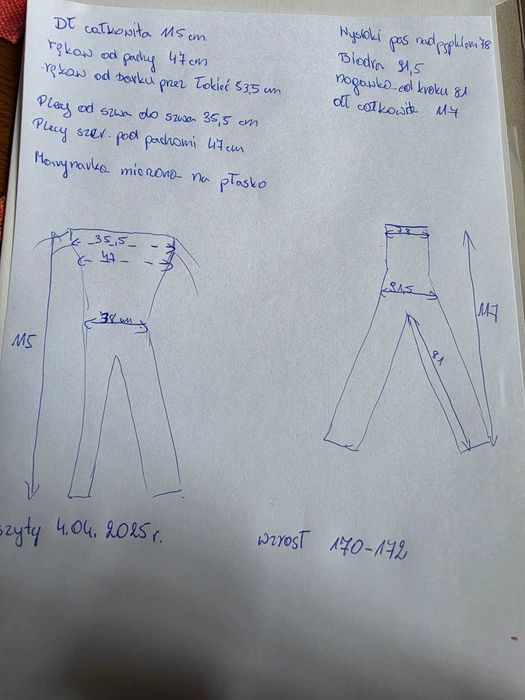 Dł całkowita 115 cm
rękaw od pachy 47 cm
rękaw od barku przez łokieć 53,5 cm
Plecy od szwa do szwa 35,5 cm
Plecy szer. pod pachami 47 cm
Marynarka mierzona na płasko
Wysoki pas nad pępkiem 78
Biodra 91,5
nogawka od kroku 81
dł całkowita 117
35,5
47
38 cm
115
78
91,5
81
117
szyty 4.04.2025 r.
wzrost 170-172